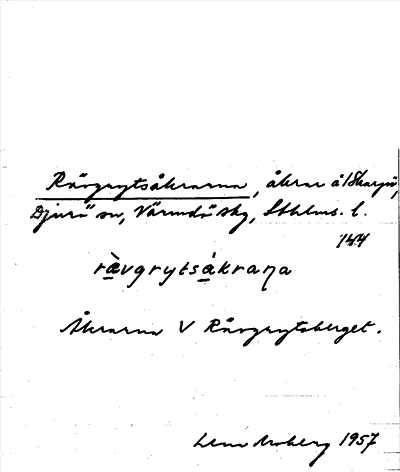 Rävgrytsåkrarna, åkrar å Skarpö,
Djurö sn, Värmdö skg, Sthlms. l.
144
rävgrytsåkrana
Åkrarna V Rävgrytsberget.
Moberg 1957